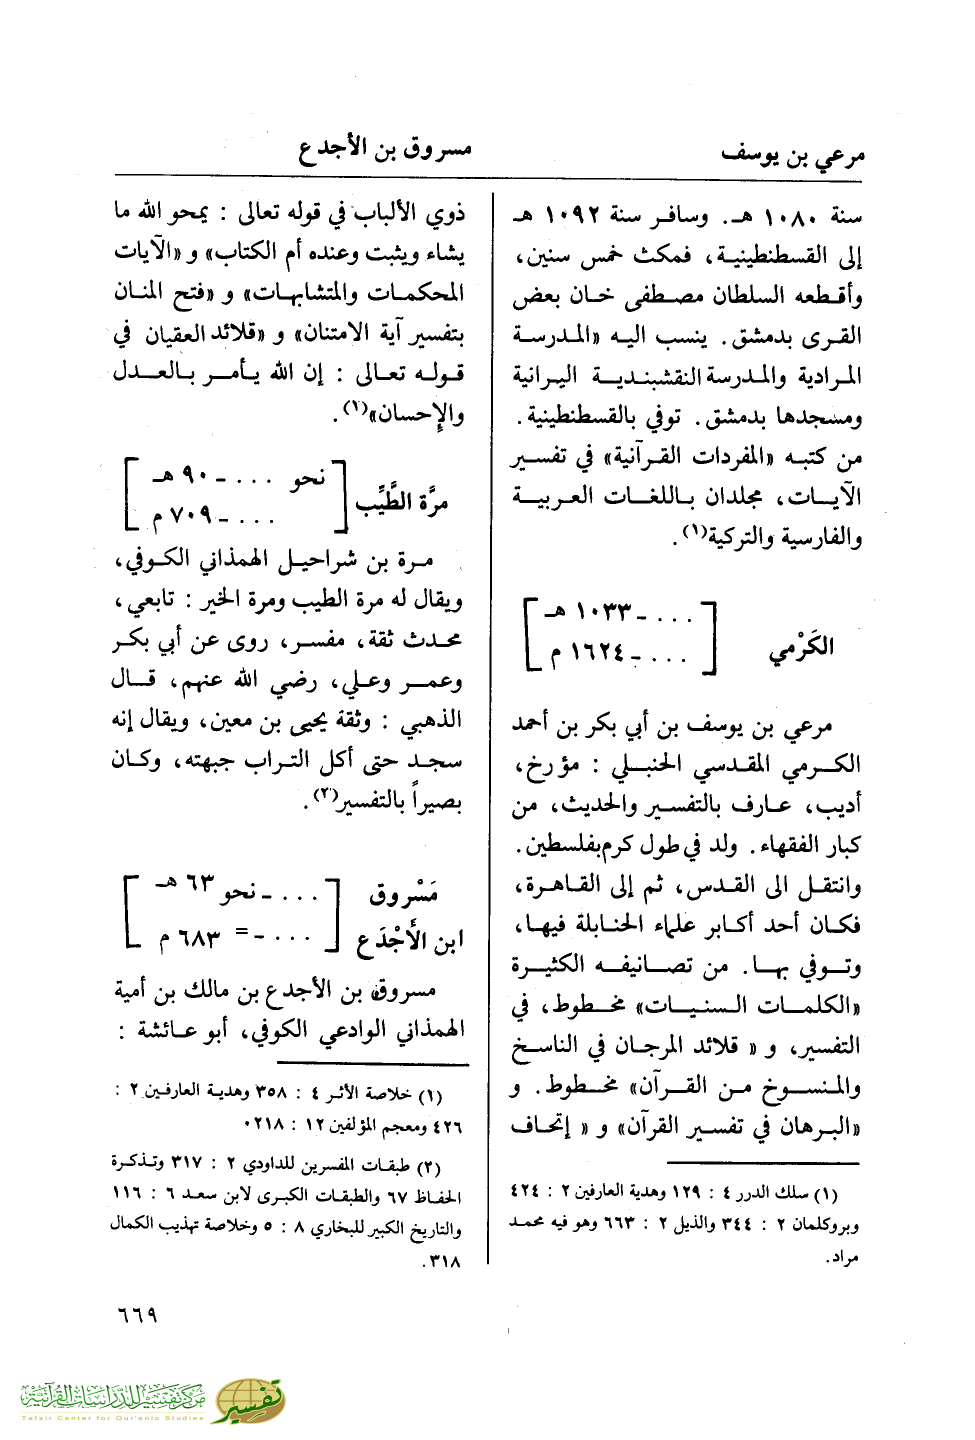 مرعي بن يوسف
مسروق بن الأجدع
سنة ١٠٨٠ هـ. وسافر سنة ١٠٩٢ هـ
إلى القسطنطينية، فمكث خمس سنين،
وأقطعه السلطان مصطفى خان بعض
القرى بدمشق. ينسب اليه «المدرسة
المرادية والمدرسة النقشبندية البرانية
ومسجدها بدمشق. توفي بالقسطنطينية.
من كتبه «المفردات القرآنية» في تفسير
الآيات، مجلدان باللغات العربية
والفارسية والتركية(١).
الكَرْمي
[... ـ ١٠٣٣ هـ
... ـ ١٦٢٤ م]
مرعي بن يوسف بن أبي بكر بن أحمد
الكرمي المقدسي الحنبلي : مؤرخ،
أديب، عارف بالتفسير والحديث، من
كبار الفقهاء. ولد في طول كرم بفلسطين.
وانتقل الى القدس، ثم إلى القاهرة،
فكان أحد أكابر علماء الحنابلة فيها،
وتوفي بها. من تصانيفه الكثيرة
«الكلمات السنيات» مخطوط، في
التفسير، و « قلائد المرجان في الناسخ
والمنسوخ من القرآن» مخطوط. و
«البرهان في تفسير القرآن» و « إتحاف
(١) سلك الدرر ٤ : ١٢٩ وهدية العارفين ٢ : ٤٢٤
وبروكلمان ٢ : ٣٤٤ والذيل ٢ : ٦٦٣ وهو فيه محمد
مراد.
ذوي الألباب في قوله تعالى : يمحو الله ما
يشاء ويثبت وعنده أم الكتاب» و «الآيات
المحكمات والمتشابهات» و «فتح المنان
بتفسير آية الامتنان» و «قلائد العقيان في
قوله تعالى : إن الله يأمر بالعدل
والإحسان»(١).
مرَّة الطَّيِّب
[نحو ... ـ ٩٠ هـ
... ـ ٧٠٩ م]
مرة بن شراحيل الهمذاني الكوفي،
ويقال له مرة الطيب ومرة الخير : تابعي،
محدث ثقة، مفسر، روى عن أبي بكر
وعمر وعلي، رضي الله عنهم، قال
الذهبي : وثقة يحيى بن معين، ويقال إنه
سجد حتى أكل التراب جبهته، وكان
بصيراً بالتفسير(٢).
مَسْروق
ابن الأَجْدَع
[... ـ نحو ٦٣ هـ
... ـ = ٦٨٣ م]
مسروق بن الأجدع بن مالك بن أمية
الهمذاني الوادعي الكوفي، أبو عائشة :
(١) خلاصة الأثر ٤ : ٣٥٨ وهدية العارفين ٢ :
٤٢٦ ومعجم المؤلفين ١٢ : ٢١٨٠
(٢) طبقات المفسرين للداودي ٢ : ٣١٧ وتذكرة
الحفاظ ٦٧ والطبقات الكبرى لابن سعد ٦ : ١١٦
والتاريخ الكبير للبخاري ٨ : ٥ وخلاصة تهذيب الكمال
٣١٨.
٦٦٩
مركز تفسير للدراسات القرآنية
Tafsir Center for Qur'anic Studies
تفسير